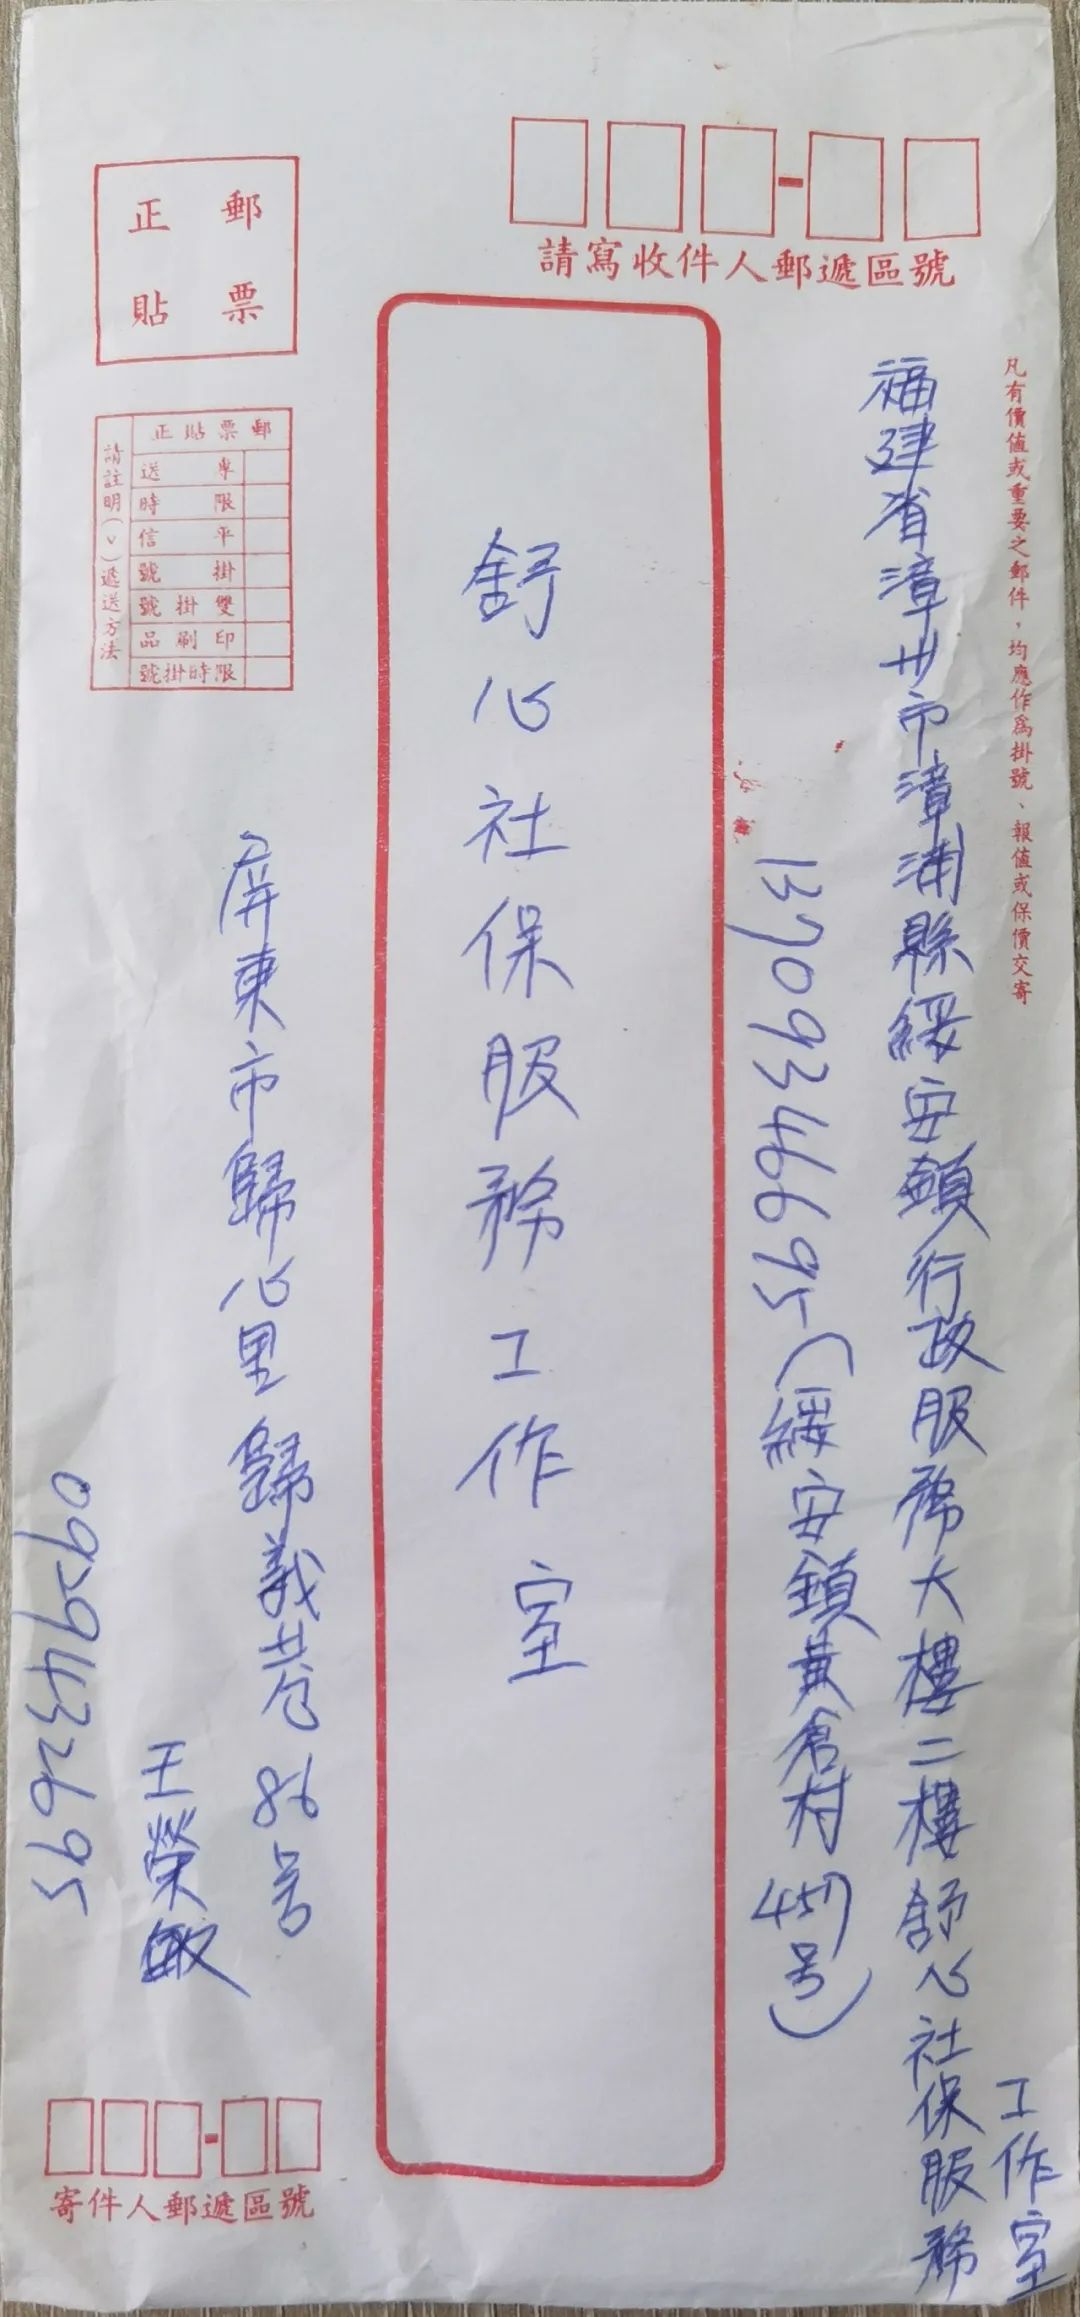 請寫收件人郵遞區號
凡有價值或重要之郵件，均應作為掛號、報值或保價交寄
福建省漳州市漳浦縣綏安鎮行政服務大樓二樓舒心社保服務
工作室
13709346695（綏安鎮黃倉村457号）
舒心社保服務工作室
郵票
正貼
郵票貼正
專送
限時
平信
掛號
雙掛號
印刷品
限時掛號
請註明(v)遞送方法
屏東市歸心里歸義巷86号
王榮敏
0929432695
寄件人郵遞區號